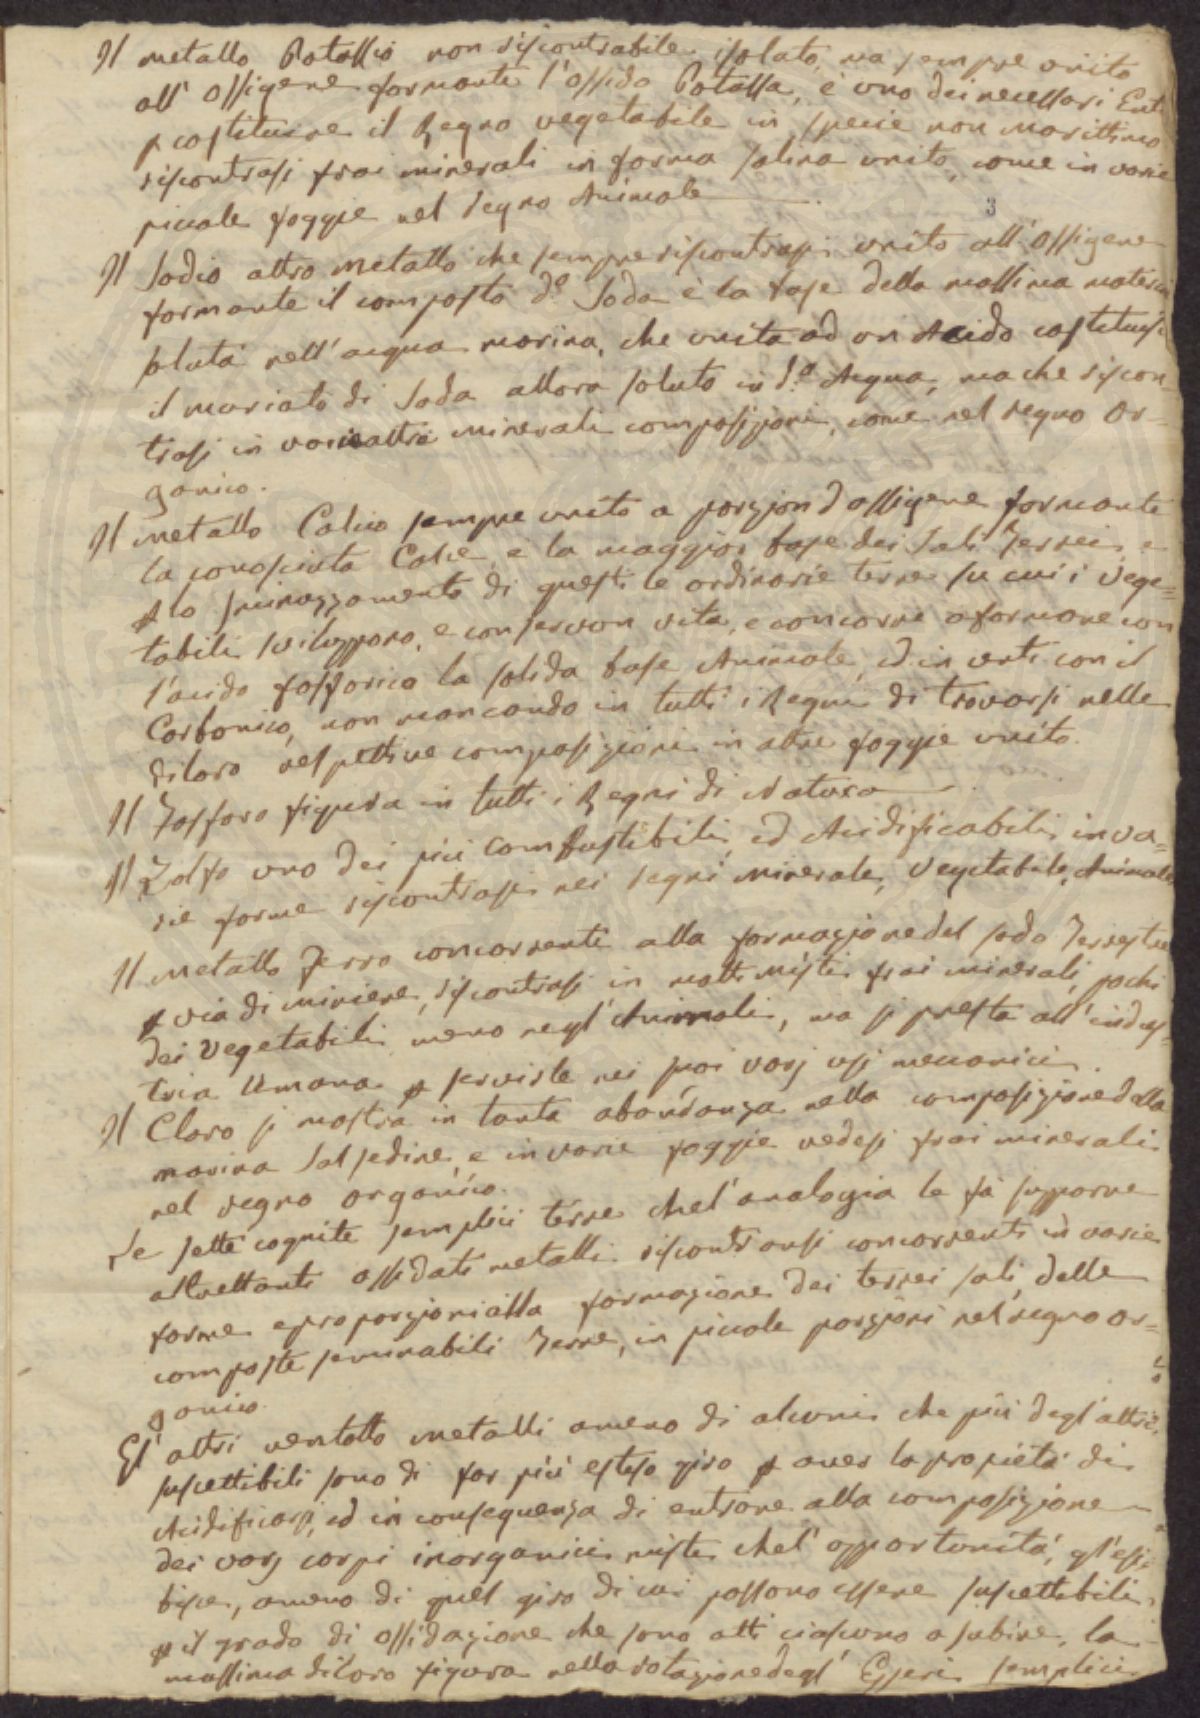 Il metallo Potassio non riscontrabile isolato, ma sempre unito
all' Ossigene formante l'ossido Potassa, è uno dei necessari Enti
p costituire il Regno vegetabile in specie non marittimo
riscontrasi frai minerali in forma salina unito, come in varie
piccole foggie nel regno Animale
3
Il Sodio altro metallo che sempre riscontrasi unito all' Ossigene
formante il composto d.o Soda è la base della massima materia
soluta nell'acqua marina, che unita ad un Acido costituisce
il muriato di Soda allora soluto in d.a Acqua, ma che riscon-
trasi in varie altre minerali composizioni, come nel regno Or-
ganico.
Il metallo Calcio sempre unito a porzion d'ossigene formante
la conosciuta Calce, è la maggior base dei Sali Terrei, e
p lo sminuzzamento di questi le ordinarie terre su cui i Vege=
tabili sviluppano, e conservon vita, e concorre a formare con
l'acido fosforico la solida base Animale, ed in uni con il
Carbonico, non mancando in tutti i Regni di trovarsi nelle
di loro respettive composizioni in altre foggie unito.
Il Fosforo figura in tutti i Regni di Natura
Il Zolfo uno dei più Combustibili, ed Acidificabili in va=
rie forme riscontrasi nei regni minerale, Vegetabile, Animale
Il metallo Ferro concorrente alla formazione del sodo Terrestre
p via di miniere, riscontrasi in molti misti frai minerali, pochi
dei Vegetabili meno negl' Animali, ma si presta all' indus=
tria Umana p servirle nei suoi varj usi meccanici.
Il Cloro si mostra in tanta abondanza nella composizione della
marina Salsedine, e in varie foggie vedesi frai minerali
nel regno organico.
Le sette cognite semplici terre che l'analogia le fà supporre
altrettanti ossidati metalli riscontransi concorrenti in varie
forme e proporzioni alla formazione dei terrei sali, delle
composte seminabili Terre, in piccole porzioni nel regno or=
ganico.
Gl' altri ventotto metalli ameno di alcuni che più degl'altri
suscettibili sono di far più esteso giro p aver la propietà di
Acidificarsi, ed in conseguenza di entrare alla composizione
dei varj corpi inorganici misti che l' opportunità, gl'esi-
bisce, ameno di quel giro di cui possono essere suscettibili
p il grado di ossidazione che sono atti ciascuno a subire, la
massima di loro figura nella rotazione degl' Esseri semplici